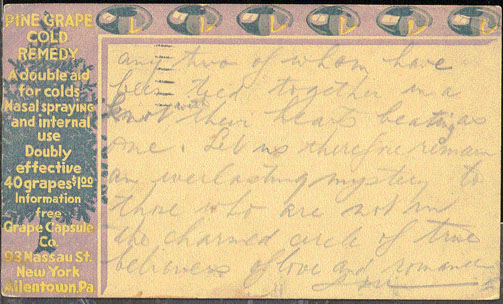 PINE GRAPE
COLD
REMEDY
A double aid
for colds
Nasal spraying
and internal
use
Doubly
effective
40 grapes $1.00
Information
free
Grape Capsule
Co.
93 Nassau St.
New York
Allentown, Pa.
any two of whom have
been tied together in a
knot with their hearts beating as
one. Let us therefore remain
an everlasting mystery to
those who are not in
the charmed circle of true
believers of love and romance